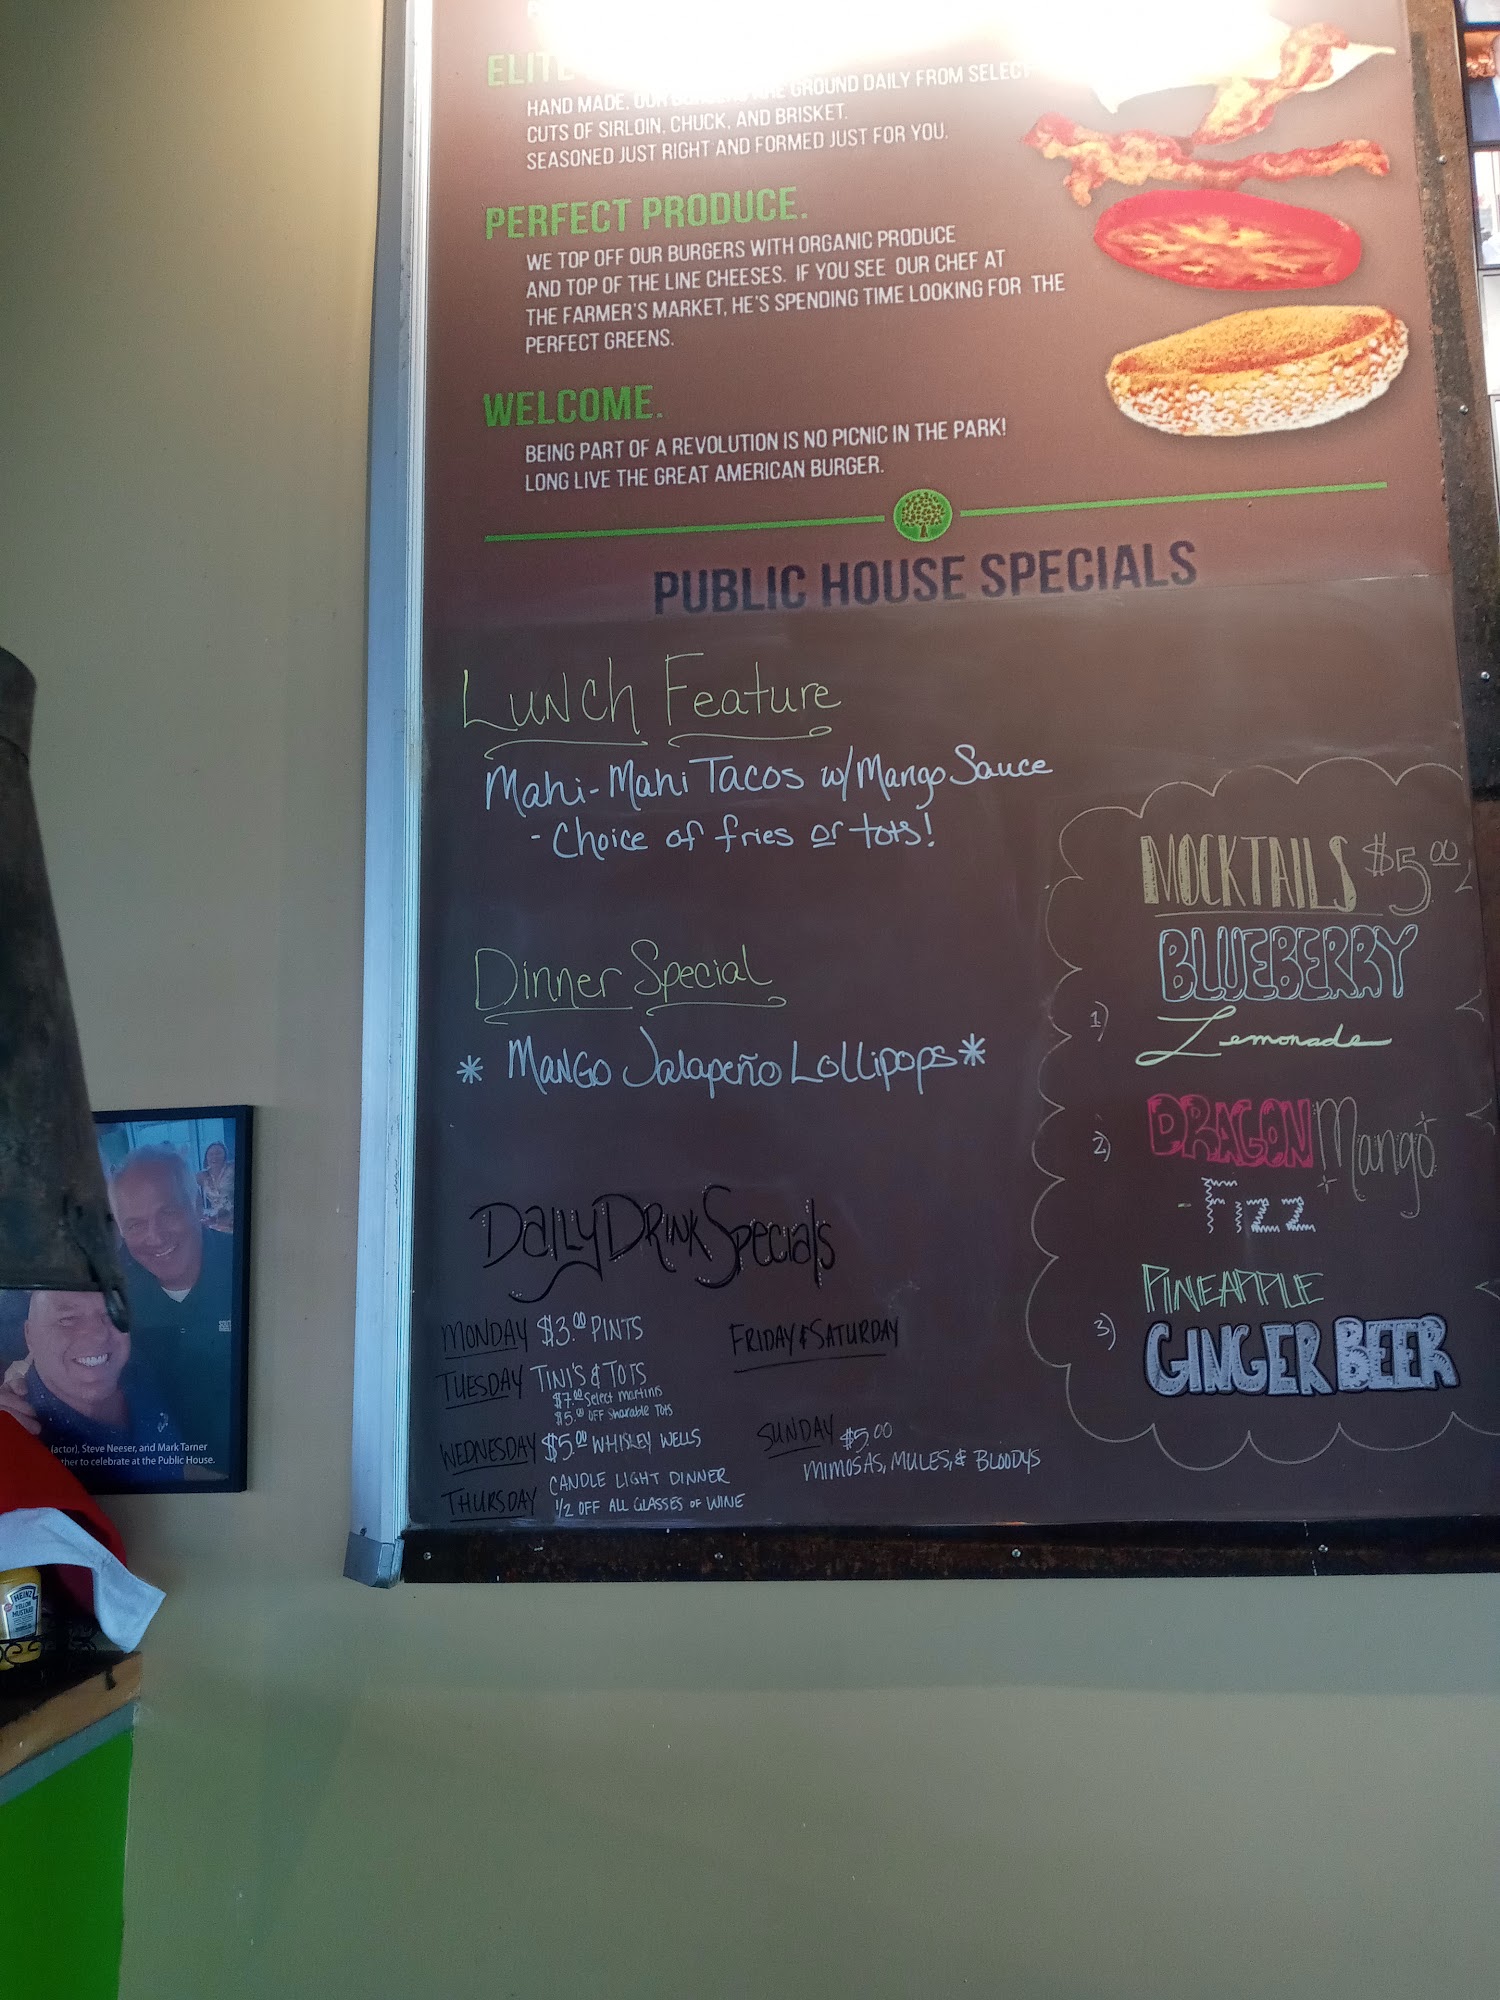 ELITE
HAND MADE. OUR BURGERS ARE GROUND DAILY FROM SELECT
CUTS OF SIRLOIN, CHUCK, AND BRISKET.
SEASONED JUST RIGHT AND FORMED JUST FOR YOU.
PERFECT PRODUCE.
WE TOP OFF OUR BURGERS WITH ORGANIC PRODUCE
AND TOP OF THE LINE CHEESES. IF YOU SEE OUR CHEF AT
THE FARMER'S MARKET, HE'S SPENDING TIME LOOKING FOR THE
PERFECT GREENS.
WELCOME.
BEING PART OF A REVOLUTION IS NO PICNIC IN THE PARK!
LONG LIVE THE GREAT AMERICAN BURGER.
PUBLIC HOUSE SPECIALS
Lunch Feature
Mahi-Mahi Tacos w/ Mango Sauce
- Choice of fries or tots!
Dinner Special
* Mango Jalapeño Lollipops *
Daily Drink Specials
MONDAY $3.00 PINTS
TUESDAY TINI'S & TOTS
$7.00 Select Martinis
$5.00 OFF Sharable TOTS
WEDNESDAY $5.00 WHISKEY WELLS
THURSDAY CANDLE LIGHT DINNER
1/2 OFF ALL GLASSES OF WINE
FRIDAY & SATURDAY
SUNDAY $5.00
MIMOSAS, MULES, & BLOODYS
MOCKTAILS $5.00
1) BLUEBERRY
Lemonade
2) DRAGON Mango
- Fizz
3) PINEAPPLE
GINGER BEER
(actor), Steve Neeser, and Mark Tarner
ther to celebrate at the Public House.
HEINZ
YELLOW
MUSTARD